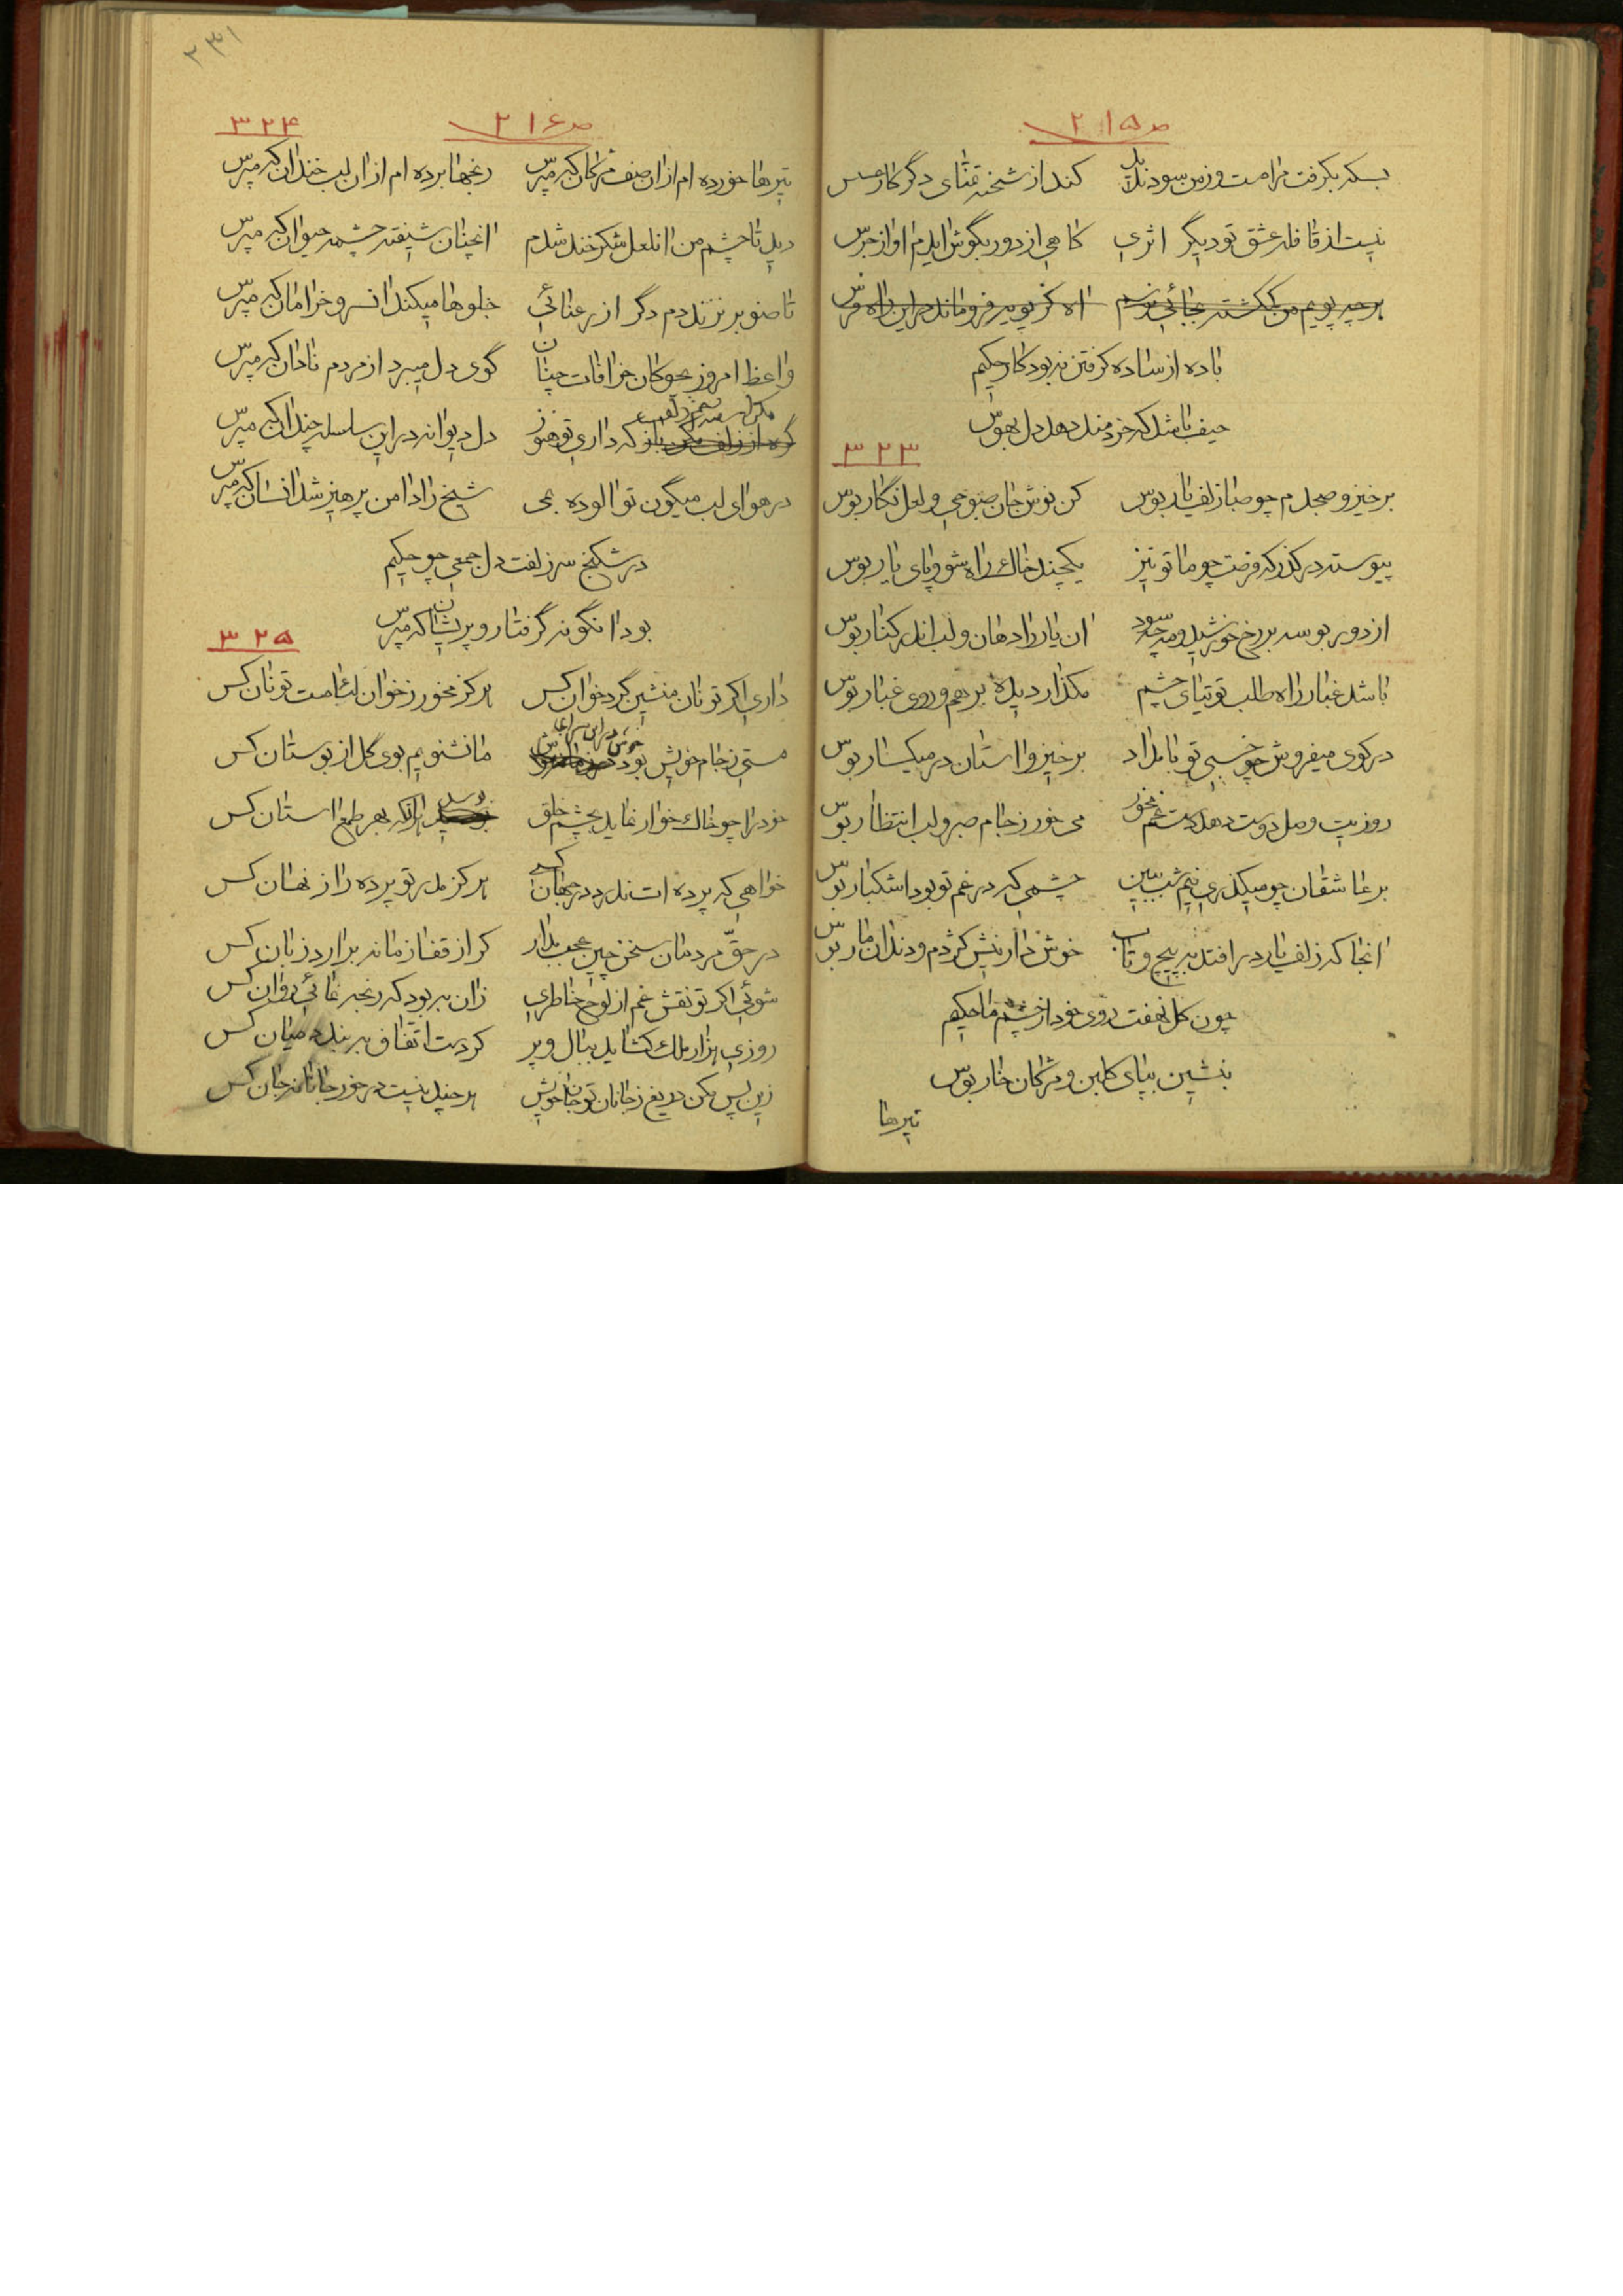 ص ۲۱۵
بسکه بگرفت مرا مست وزین سود ندید کند از شخنه تمنای دگر کار عسس
نیست از قافله عشق تو دیگر اثری کاهی از دور بگوش ایدم اواز جرس
هرچه پویم من گمگشته بجائی نرسم اه کز پویه فروماند در این راه فرس
باده از ساده گرفتن نه بود کار حکیم
حیف باشد که خردمند دهد دل بهوس
۳۲۳
برخیز و صبحدم چو صبا زلف یار بوس کن نوش جان صبوحی و لعل نگار بوس
پیوسته در گذر که فرصت چو ما تو نیز یکچند خاک راه شو و پای یار بوس
از دور بوسه بر رخ خورشید و مه چه سود ان یار را دهان و لب اندر کنار بوس
باشد غبار راه طلب توتیای چشم مگذار دیده برهم و روی غبار بوس
در کوی میفروش چو خسبی تو بامداد برخیز و استان در میگسار بوس
روزیت وصل دوست دهد دست غم مخور می خور ز جام صبر و لب انتظار بوس
بر عاشقان چو میگذری نیم شب ببین چشمی که در غم تو بود اشکبار بوس
انجا که زلف یار در افتد به پیچ و تاب خوش دار نیش کژدم و دندان مار بوس
چون گل نهفت روی خود از چشم ما حکیم
بنشین بپای گلبن و مژگان خار بوس
تیرها
۲۳۱
ص ۲۱۶
۳۲۴
تیرها خورده ام از ان صف مژگان که مپرس رنجها برده ام از ان لب خندان که مپرس
دید تا چشم من ان لعل شکر خند شدم انچنان شیفته چشمه حیوان که مپرس
تا صنوبر نزند دم دگر از رعنائی جلوها میکند ان سرو خرامان که مپرس
واعظ امروز بچوکان خرافات چنان گوی دل میبرد از مردم نادان که مپرس
گره از زلف مکن باز که داری تو هنوز دل دیوانه در این سلسله چندان که مپرس
در هوای لب میگون تو الوده بمی شیخ را دامن پرهیز شد انسان که مپرس
در شکنج سر زلفت دل جمعی چو حکیم
بود انگونه گرفتار و پریشان که مپرس
۳۲۵
داری اگر تو نان منشین گرد خوان کس هرگز مخور ز خوان لئامت تو نان کس
مستی ز جام خویش بود خوش در این سرای ما نشنویم بوی گل از بوستان کس
خود را چو خاک خوار نماید بچشم خلق بوسد هر انکه بهر طمع استان کس
خواهی که پرده ات ندرد در جهان کسی هرگز مدر تو پرده راز نهان کس
در حق مردمان سخن چین عجب مدار گر از قفا زمانه برارد زبان کس
شوئی اگر تو نقش غم از لوح خاطری زان به بود که رنجه نمائی روان کس
روزی هزار ملک گشاید ببال و پر گر دست اتفاق به بندد میان کس
زین پس مکن دریغ ز جانان تو جان خویش هرچند نیست در خور جانانه جان کس